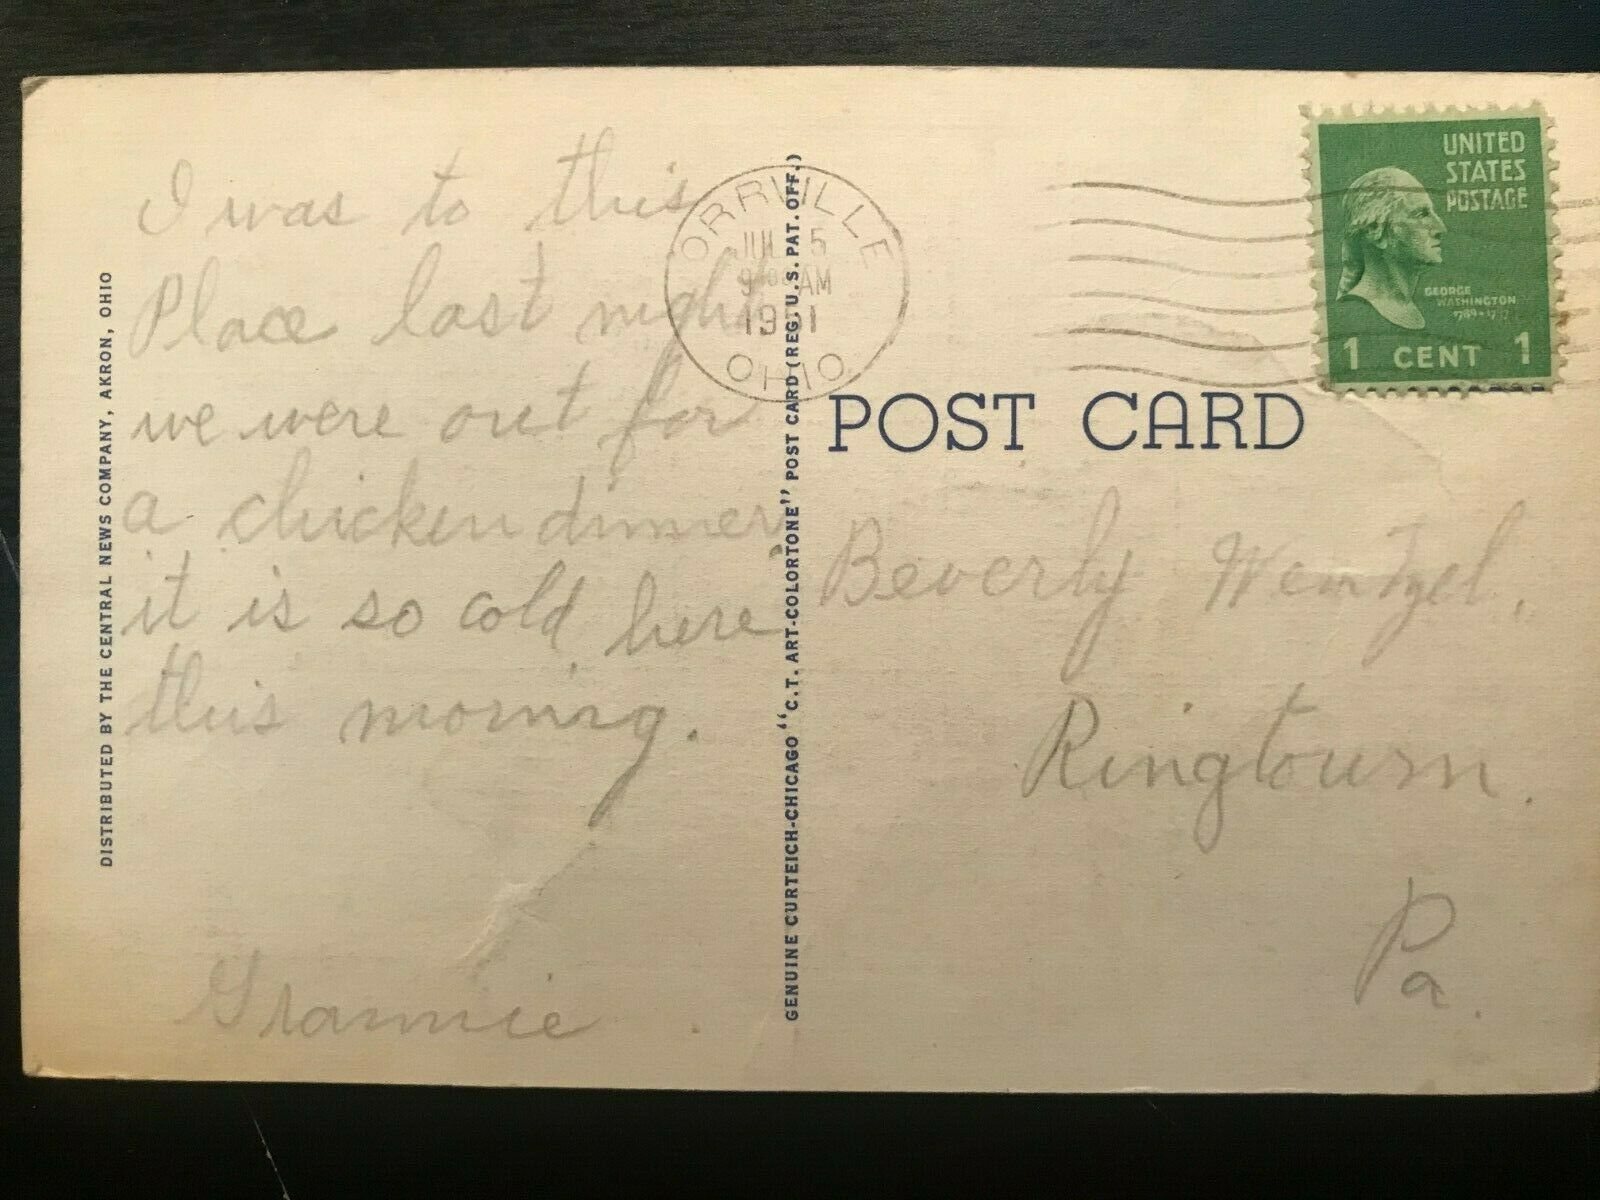 I was to this
Place last night
we were out for
a chicken dinner
it is so cold here
this morning.
Grannie
DISTRIBUTED BY THE CENTRAL NEWS COMPANY, AKRON, OHIO
GENUINE CURTEICH-CHICAGO "C.T. ART-COLORTONE" POST CARD (REG. U.S. PAT. OFF.)
ORRVILLE
JUL 5
9 AM
1951
OHIO
UNITED
STATES
POSTAGE
GEORGE
WASHINGTON
1 CENT 1
POST CARD
Beverly Wentzel,
Ringtown.
Pa.